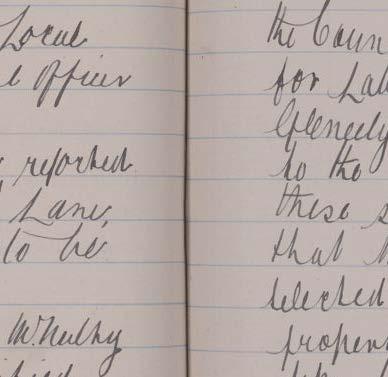 Local
l Officer
reported
Lane,
to be
McNulty
the Coun
for La
Glenely
to the
these s
that
selected
proper